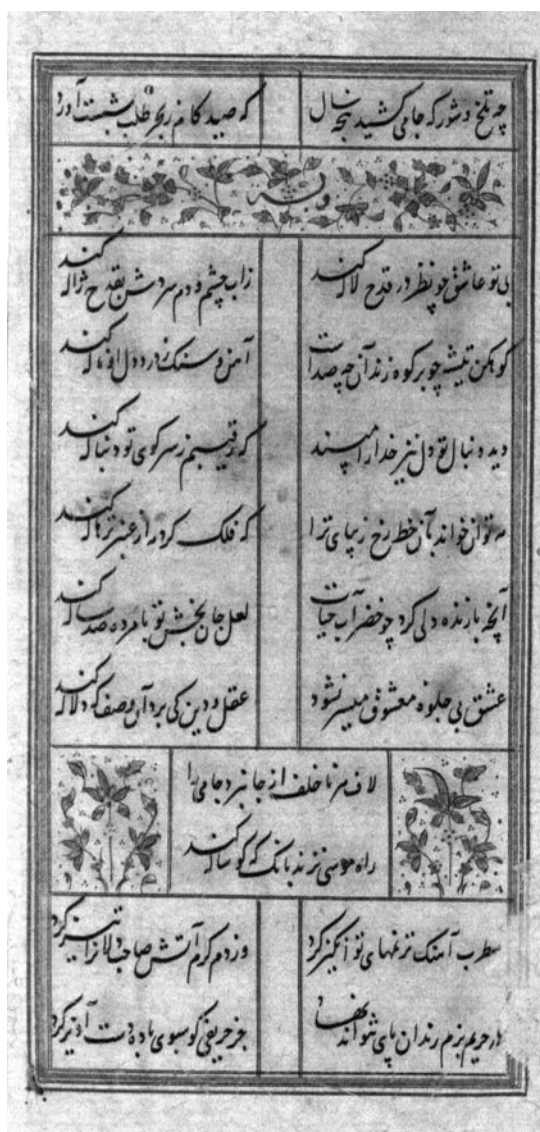 چه تلخ و شور که جامی کشید پنجه سال که صید کام ز بحر طلب بشست آورد
وله
بی تو عاشق چو نظر در قدح لاله کند زاب چشم و دم سردش بقدح ژاله کند
کوهکن تیشه چو بر کوه زند آن چه صداست آهن و سنگ ز درد دل او ناله کند
دیده دنبال تو دل نیز خدا را مپسند که رقیبم ز سر کوی تو دنباله کند
مه توان خواند بآن خط رخ زیبای ترا که فلک گرد مه از عنبر تر هاله کند
آنچه با زنده دلی کرد چو خضر آب حیات لعل جان بخش تو با مرده صد ساله کند
عشق بی جلوه معشوق میسر نشود عقل و دین کی برد آن وصف که دلاله کند
لاف هر ناخلف از جا نبرد جامی را
راه موسی نزند بانگ که گوساله کند
مطرب آهنگ ترنمهای نو انگیز کرد وز دم گرم آتش صاحبدلانرا تیز کرد
در حریم بزم رندان پای نتواند نهاد جز حریفی کو سبوی باده دست آویز کرد